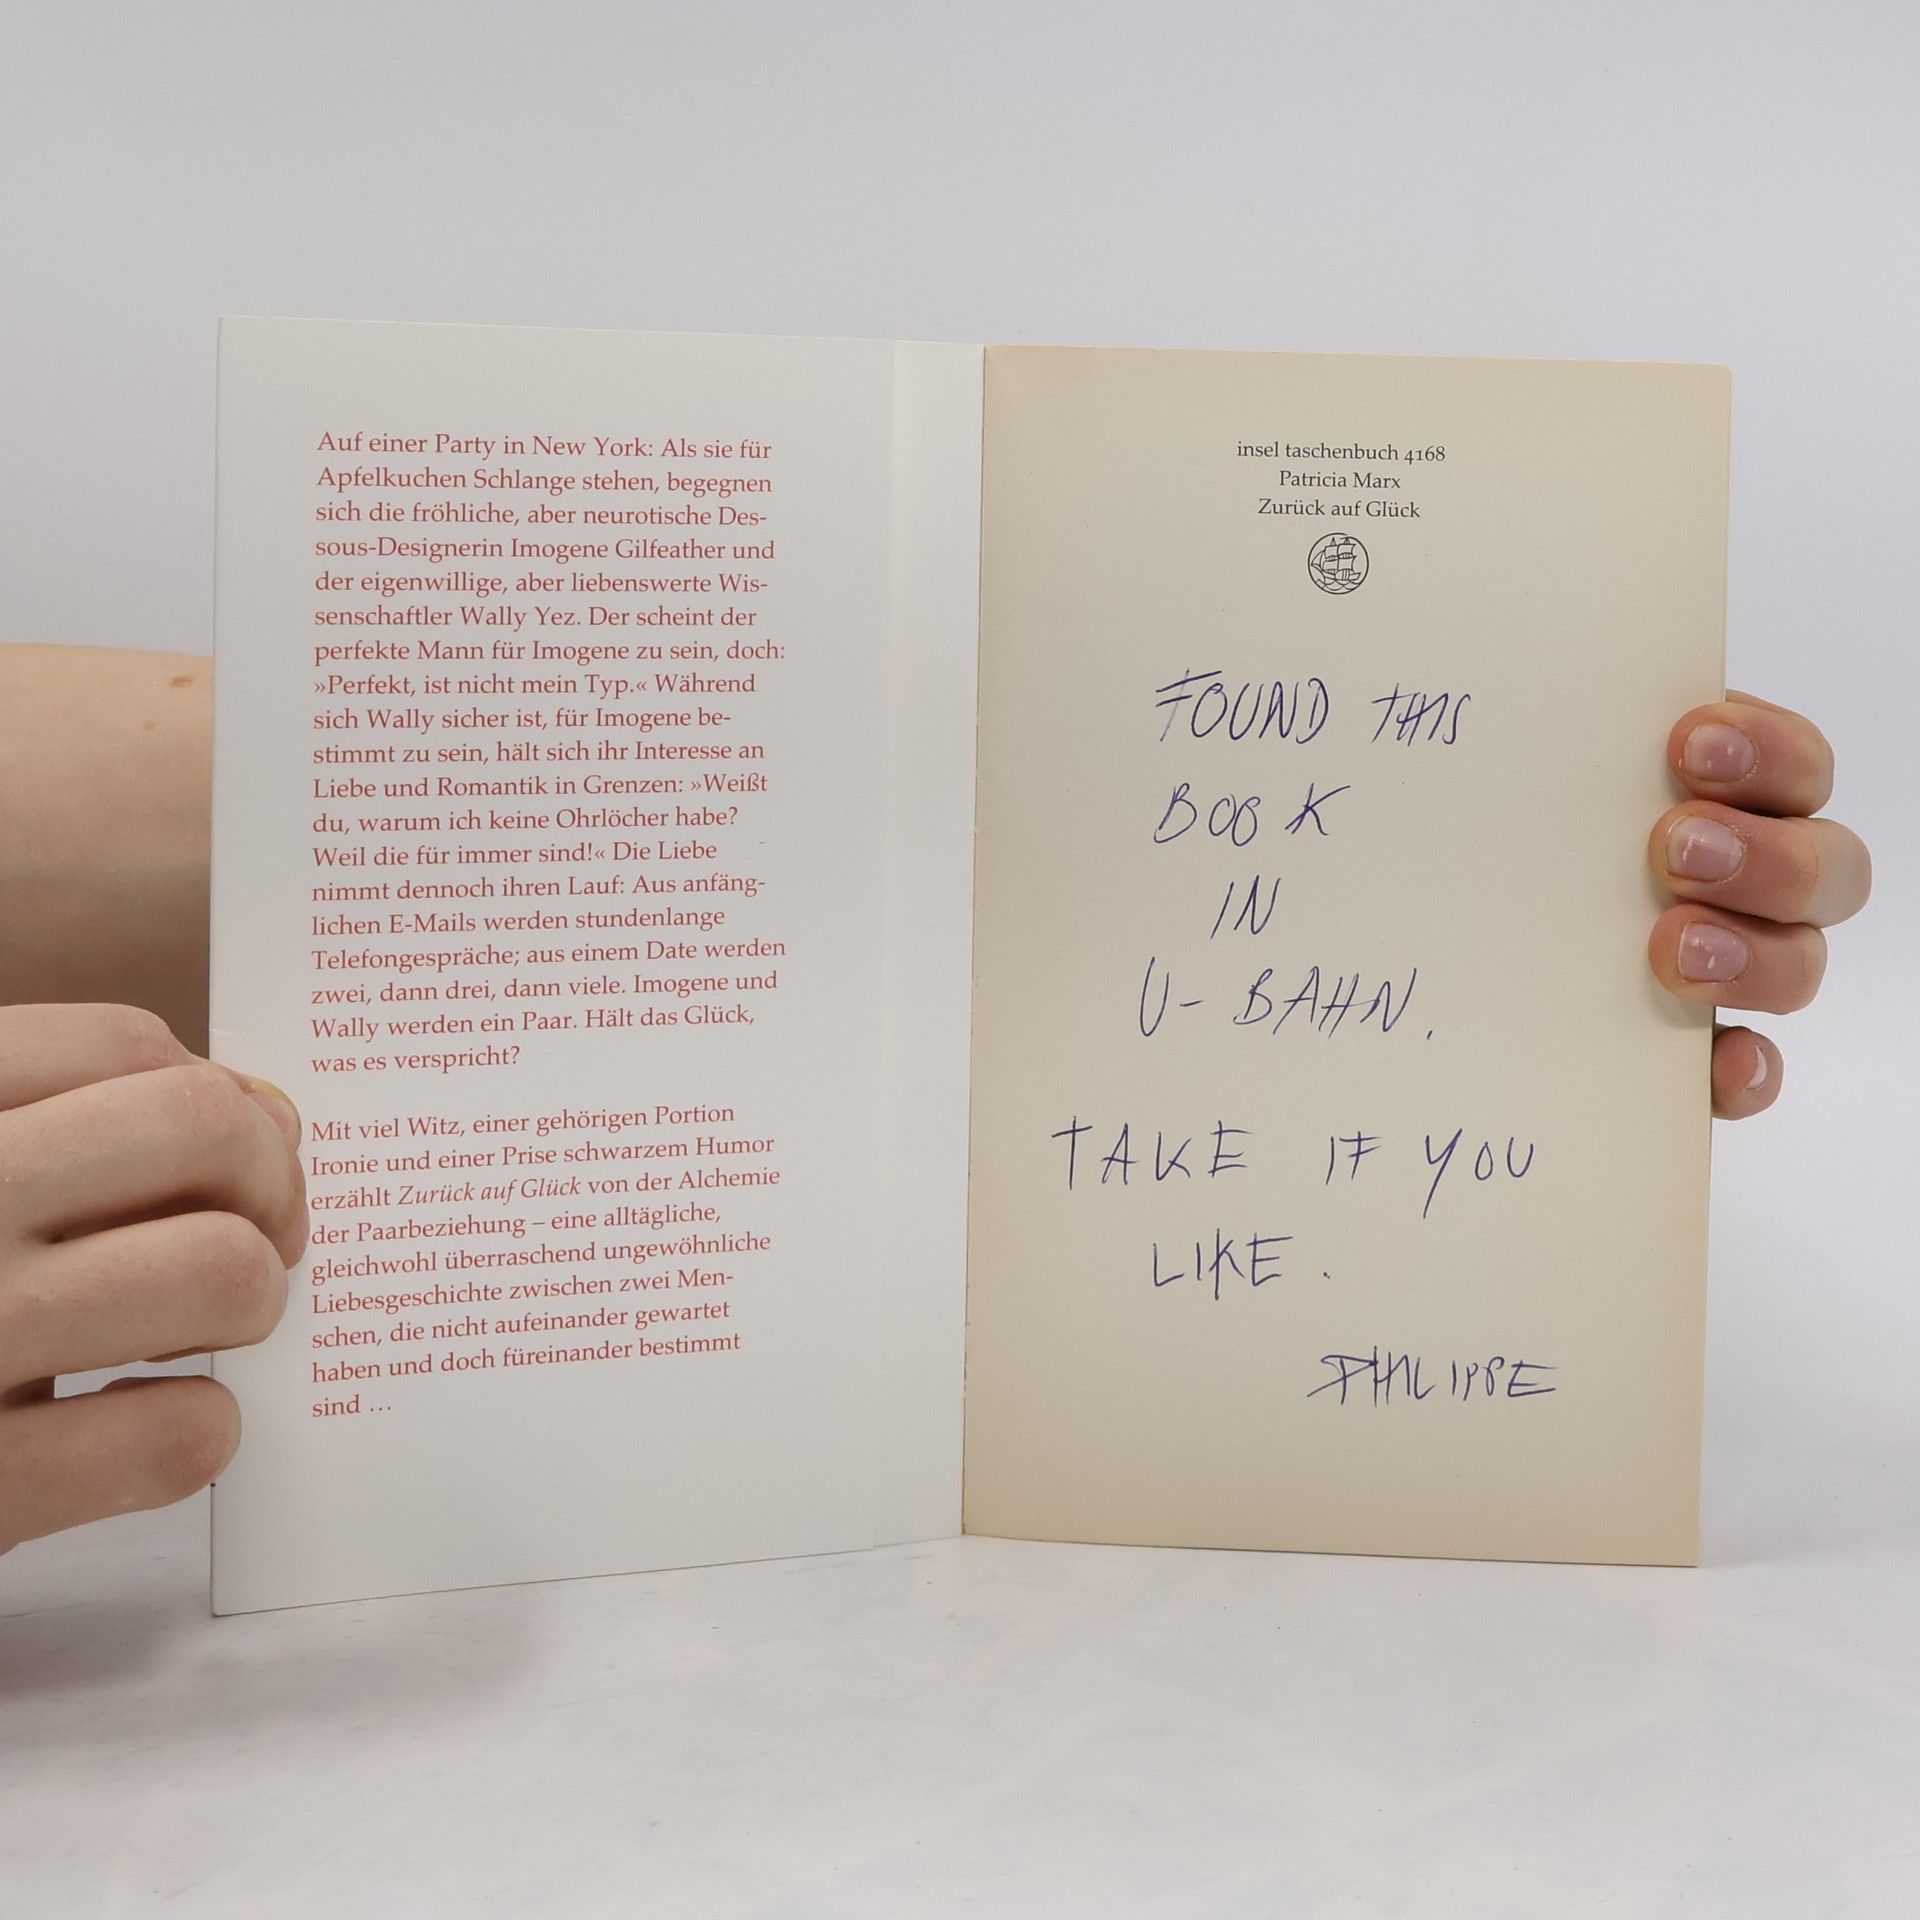 Auf einer Party in New York: Als sie für
Apfelkuchen Schlange stehen, begegnen
sich die fröhliche, aber neurotische Des-
sous-Designerin Imogene Gilfeather und
der eigenwillige, aber liebenswerte Wis-
senschaftler Wally Yez. Der scheint der
perfekte Mann für Imogene zu sein, doch:
»Perfekt, ist nicht mein Typ.« Während
sich Wally sicher ist, für Imogene be-
stimmt zu sein, hält sich ihr Interesse an
Liebe und Romantik in Grenzen: »Weißt
du, warum ich keine Ohrlöcher habe?
Weil die für immer sind!« Die Liebe
nimmt dennoch ihren Lauf: Aus anfäng-
lichen E-Mails werden stundenlange
Telefongespräche; aus einem Date werden
zwei, dann drei, dann viele. Imogene und
Wally werden ein Paar. Hält das Glück,
was es verspricht?
Mit viel Witz, einer gehörigen Portion
Ironie und einer Prise schwarzem Humor
erzählt Zurück auf Glück von der Alchemie
der Paarbeziehung – eine alltägliche,
gleichwohl überraschend ungewöhnliche
Liebesgeschichte zwischen zwei Men-
schen, die nicht aufeinander gewartet
haben und doch füreinander bestimmt
sind …
insel taschenbuch 4168
Patricia Marx
Zurück auf Glück
FOUND THIS
BOOK
IN
U-BAHN.
TAKE IF YOU
LIKE.
PHILIPPE